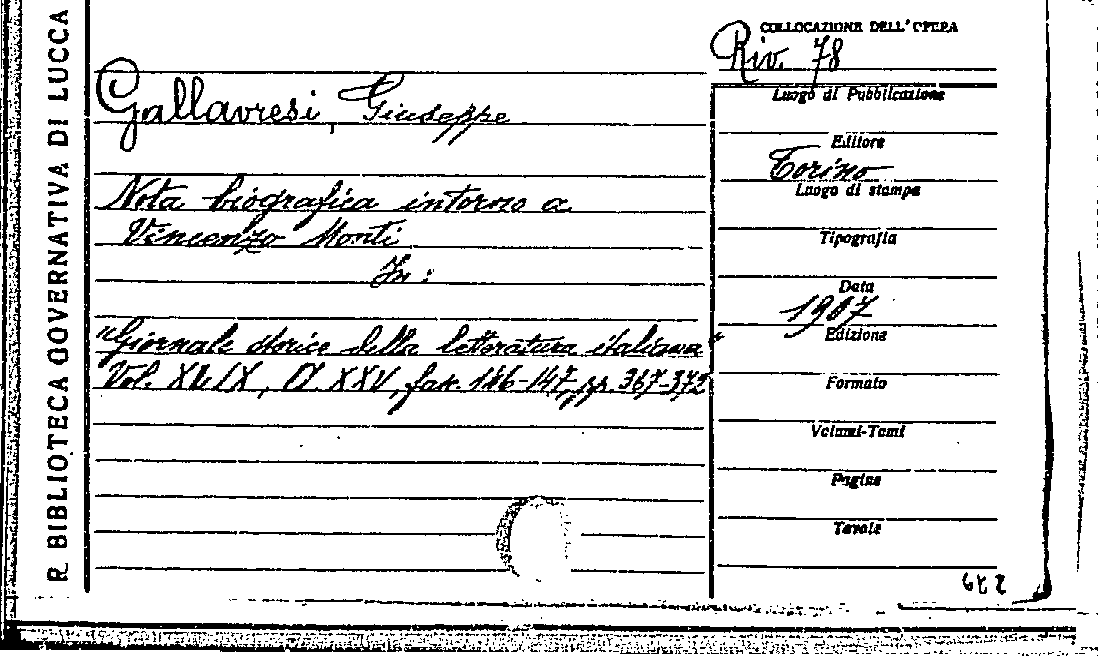 R. BIBLIOTECA GOVERNATIVA DI LUCCA
COLLOCAZIONE DELL'OPERA
Riv. 78
Gallavresi, Giuseppe
Nota biografica intorno a
Vincenzo Monti
In:
"Giornale storico della letteratura italiana"
Vol. XLIX, A XXV, fasc. 146-147, pp. 367-372
Luogo di Pubblicazione
Editore
Torino
Luogo di stampa
Tipografia
Data
1907
Edizione
Formato
Volumi-Tomi
Pagine
Tavole